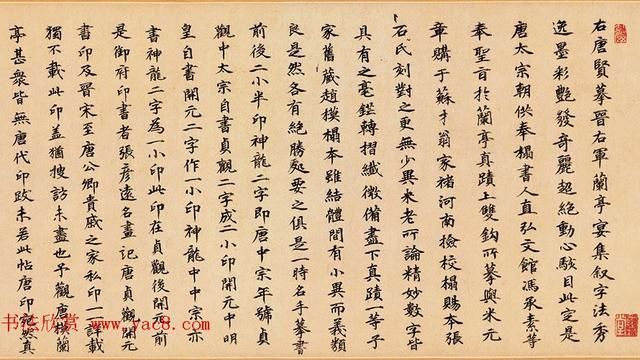 右唐賢摹晉右軍蘭亭宴集叙字法秀
逸墨彩艷發奇麗超絶動心駭目此定是
唐太宗朝供奉榻書人直弘文館馮承素等
奉聖旨於蘭亭真蹟上雙鈎所摹與米元
章購于蘇才翁家褚河南檢校榻賜本張
石氏刻對之更無少異米老所論精妙數字皆
具有之毫鋩轉摺纖微備盡下真蹟一等予
家舊藏趙模榻本雖結體間有小異而義類
良是然各有絶勝處要之俱是一時名手摹書
前後二小半印神龍二字即唐中宗年號貞
觀中太宗自書貞觀二字成二小印開元中明
皇自書開元二字作一小印神龍中中宗亦
書神龍二字為一小印此印在貞觀後開元前
是御府印書者張彦遠名畫記唐貞觀開元
書印及晉宋至唐公卿貴戚之家私印一一詳載
獨不載此印盖猶搜訪未盡也予觀唐模蘭
亭甚衆皆無唐代印跋未若此帖唐印宛然真
书法欣赏 www.yac8.com